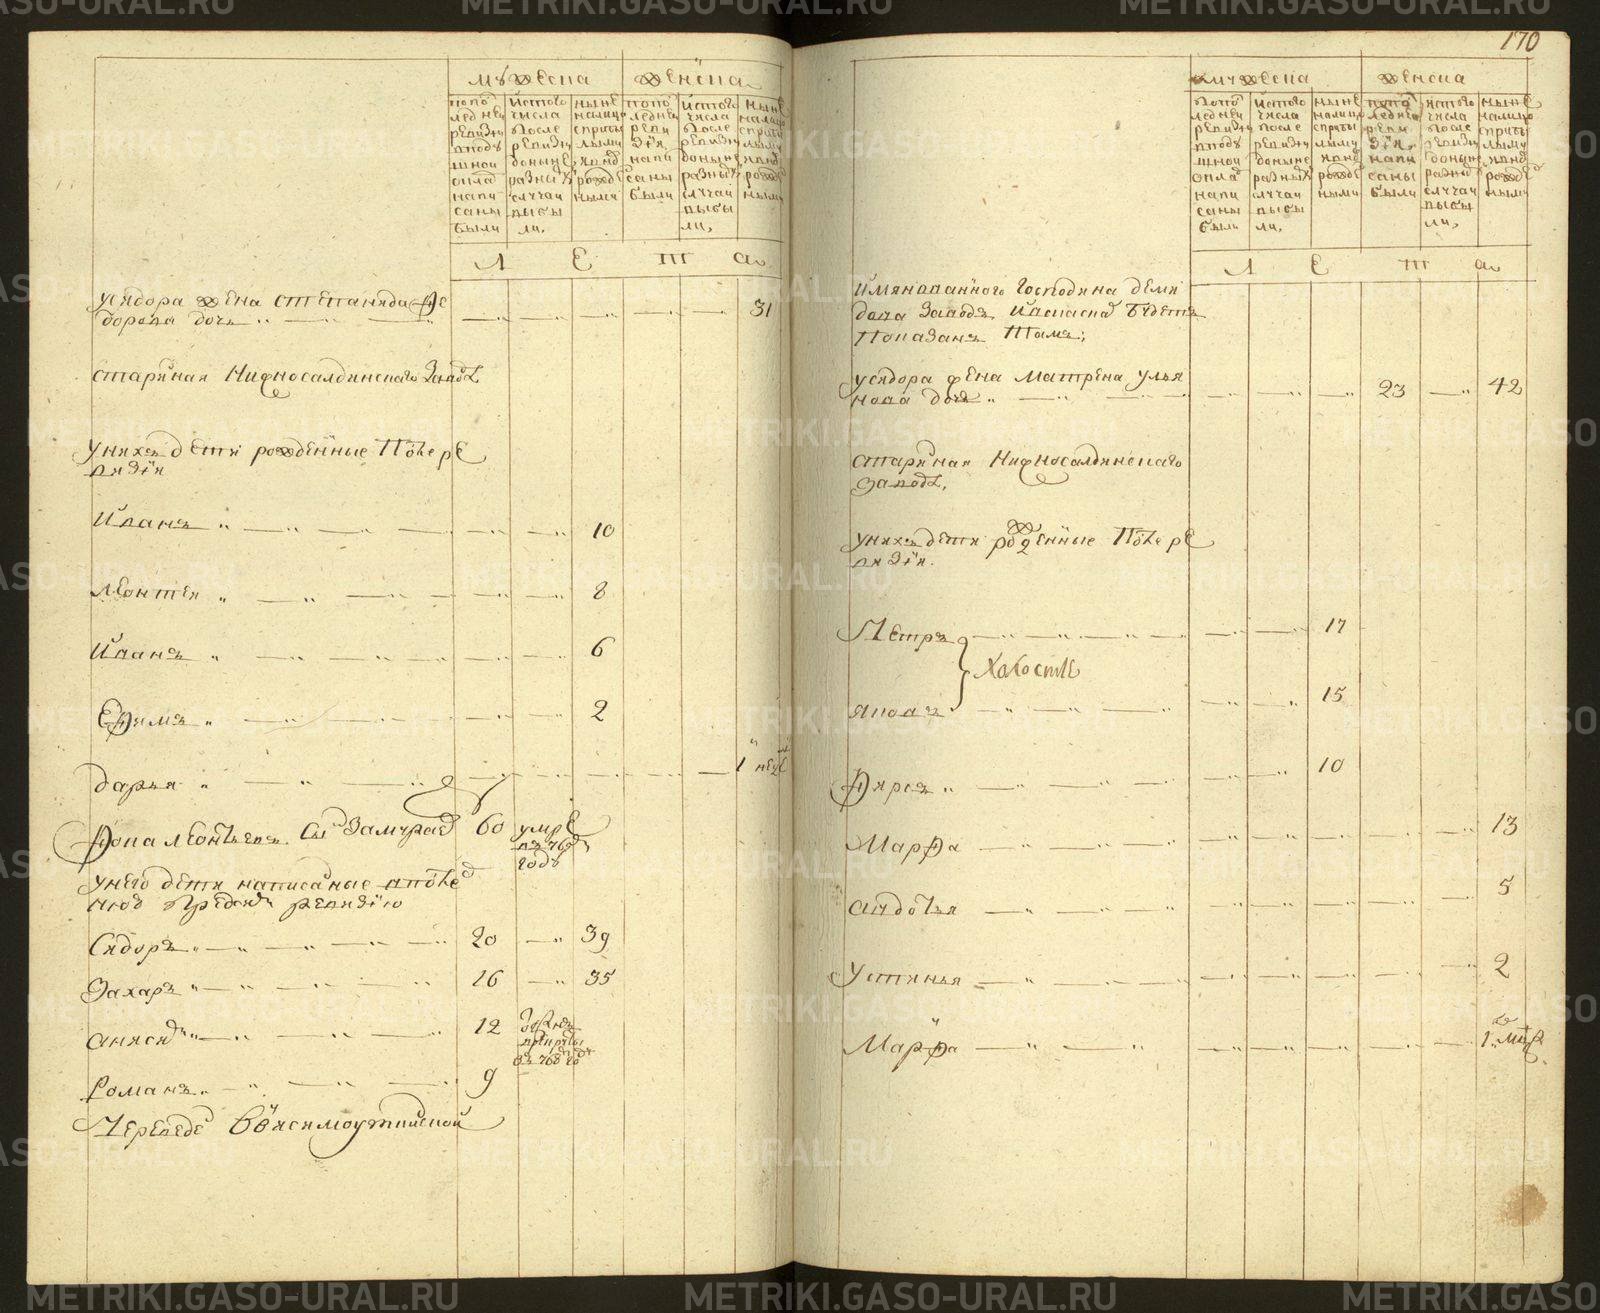 170
мужеска женска
попо следней ревизии в подушной оклад написаны были
ис того числа после ревизии доныне разных случаи выбыли,
ныне налицо с прибылыми и вновь рожденными
попо следней ревизии, написаны были
ис того числа после ревизии доныне разных случаи выбыли,
ныне налицо с прибылыми и вновь рожденными
Л Е Т а
у сидора жена степанида фе
дорова дочь 31
старинная Нижносалдинскаго Завода
у них дети рожденные После ре
визии
Иванъ 10
леонтеи 8
Иванъ 6
Ефимъ 2
дарья 1 неде
Фока леонтьевъ сынъ Замураевъ 60 умре
въ 769
годъ
у него дети написанные в после
нюю пред сим ревизию
Сидоръ 20 39
Захаръ 16 35
анисимъ 12
Романъ 9
Переведе В висимоуткинской
мужеска женска
попо следней ревизии в подушной оклад написаны были
ис того числа после ревизии доныне разных случаи выбыли,
ныне налицо с прибылыми и вновь рожденными
попо следней ревизии, написаны были
ис того числа после ревизии доныне разных случаи выбыли,
ныне налицо с прибылыми и вновь рожденными
Л Е Т а
имянованного Господина деми
дова Заводъ и в сказке будетъ
Показанъ Тамъ;
у сидора жена Матрена улья
нова дочь 23 42
старинная Нижносалдинскаго
Завода,
у них дети рожденные После ре
визии.
Петръ 17
Холосты
яковъ 15
Фирсъ 10
Марфа 13
авдотья 5
устинья 2
Марфа 1